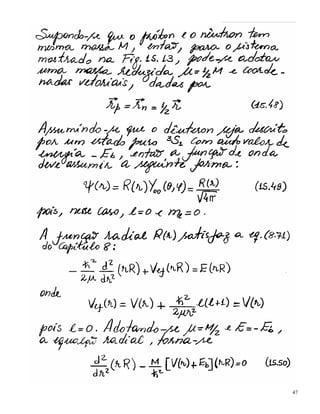 Supondo-se que o próton e o nêutron tem
mesma massa M, então, para o sistema
mostrado na Fig. 15.13, pode-se adotar
uma massa reduzida μ = ½M e coorde-
nadas vetoriais, dadas por
r⃗p = r⃗n = ½ r⃗ (15.48)
Assumindo-se que o dêuteron seja descrito
por um estado puro ³S₁ com autovalor de
energia -E_b, então a função de onda
deve assumir a seguinte forma:
ψ(r) = R(r)Y₀₀(θ,φ) = R(r)/√4π (15.49)
pois, nesse caso, l=0 e m_l=0.
A função radial R(r) satisfaz a eq. (8.71)
do Capítulo 8:
- ħ²/2μ d²/dr² (rR) + V_ef(rR) = E(rR)
onde
V_ef(r) = V(r) + ħ²/2μr² l(l+1) = V(r)
pois l=0. Adotando-se μ=M/2 e E=-E_b,
a equação radial, torna-se
d²/dr² (rR) - M/ħ² [V(r)+E_b](rR)=0 (15.50)
47